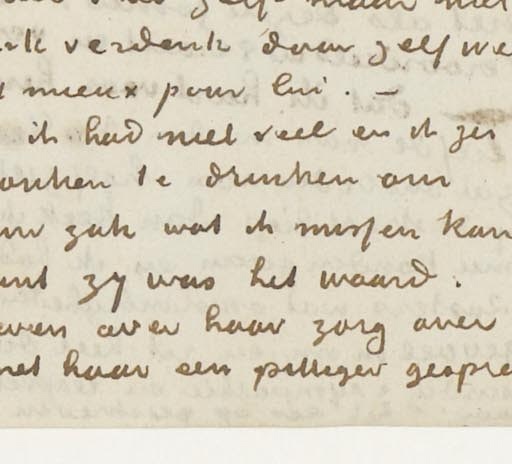 zelf maar niet
ik verdenk daar zelf we
mieux pour lui. –
ik had niet veel en ik zei
te drinken om
zak wat ik missen kan
zy was het waard.
over haar zorg over
met haar een pittiger gespre